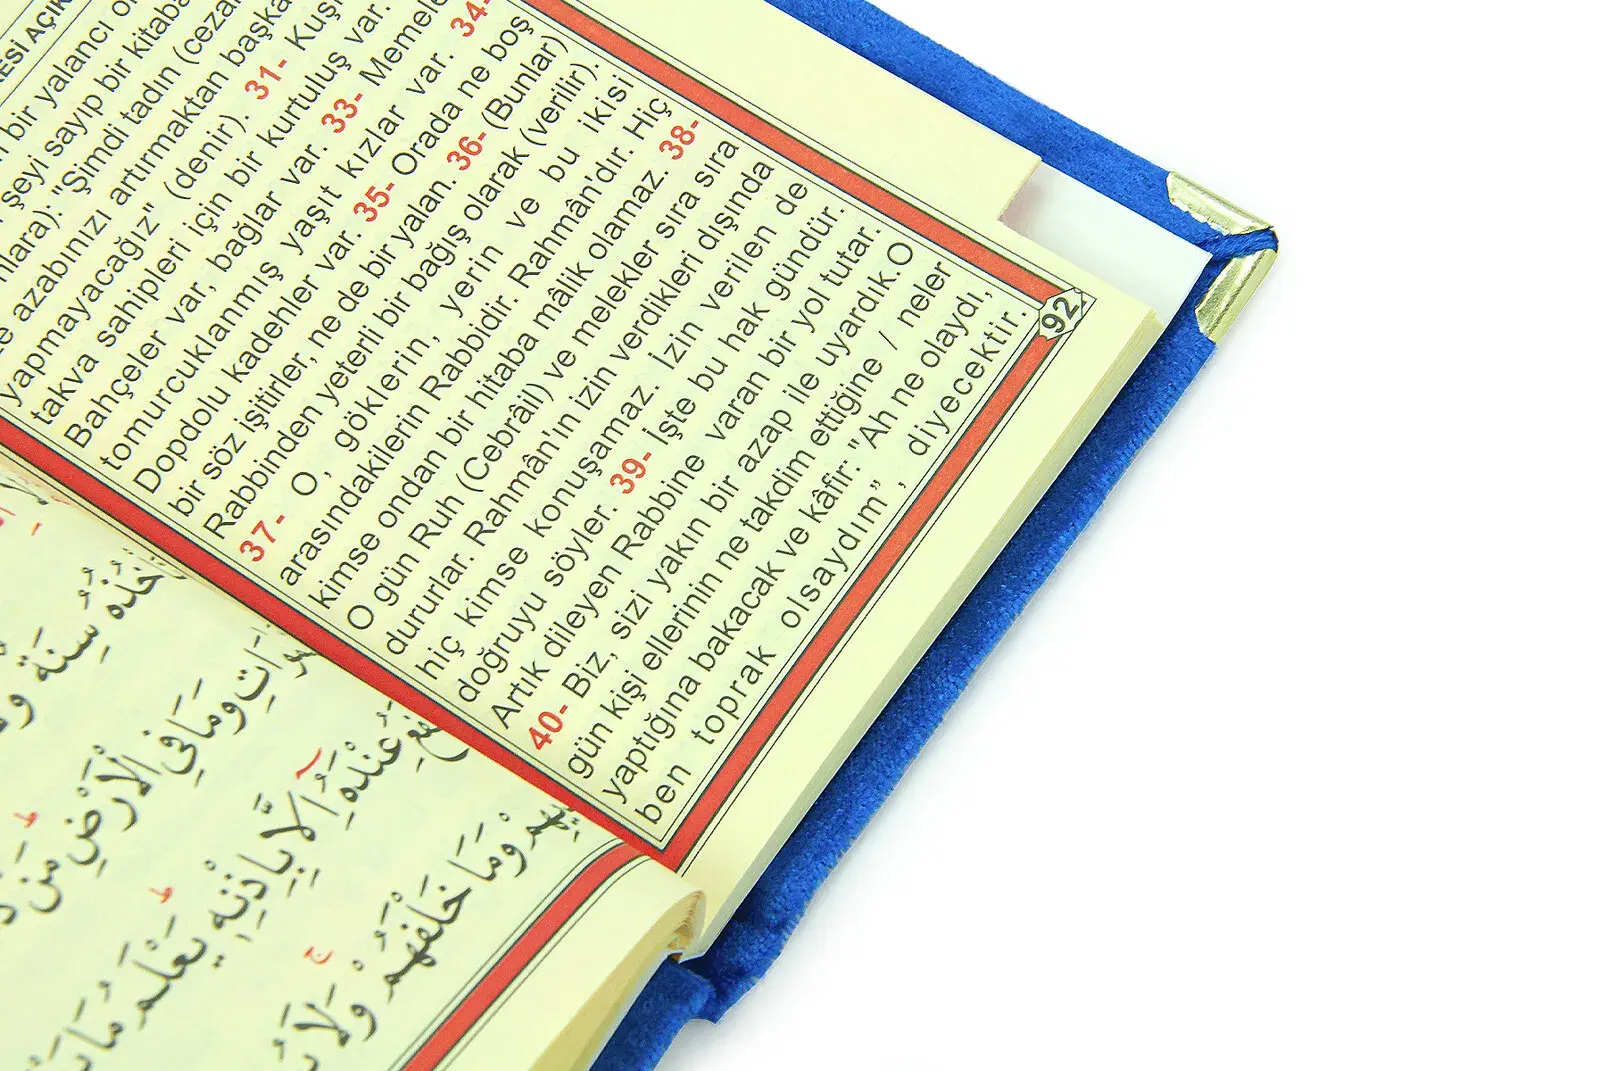 bir yalancı
şeyi sayıp bir kitaba
"Şimdi tadın
azabınızı artırmaktan başka
yapmayacağız" (denir). 31-
takva sahipleri için bir kurtuluş var.
Bahçeler var, bağlar var. 33- Memele
tomurcuklanmış yaşıt kızlar var. 34-
Dopdolu kadehler var. 35- Orada ne boş
bir söz işitirler, ne de bir yalan. 36- (Bunlar)
Rabbinden yeterli bir bağış olarak (verilir).
37- O, göklerin, yerin ve bu ikisi
arasındakilerin Rabbidir. Rahmân'dır. Hiç
kimse ondan bir hitaba mâlik olamaz. 38-
O gün Ruh (Cebrâil) ve melekler sıra sıra
dururlar. Rahmân'ın izin verdikleri dışında
hiç kimse konuşamaz. İzin verilen de
doğruyu söyler. 39- İşte bu hak gündür.
Artık dileyen Rabbine varan bir yol tutar.
40- Biz, sizi yakın bir azap ile uyardık.O
gün kişi ellerinin ne takdim ettiğine / neler
yaptığına bakacak ve kâfir: "Ah ne olaydı,
ben toprak olsaydım”, diyecektir.
92
سِنَةٌ
وَمَا فِي الْاَرْضِ مَنْ
عِنْدَهُٓ اِلَّا بِاِذْنِهٖ يَعْلَمُ مَا
وَمَا خَلْفَهُمْ وَلَا